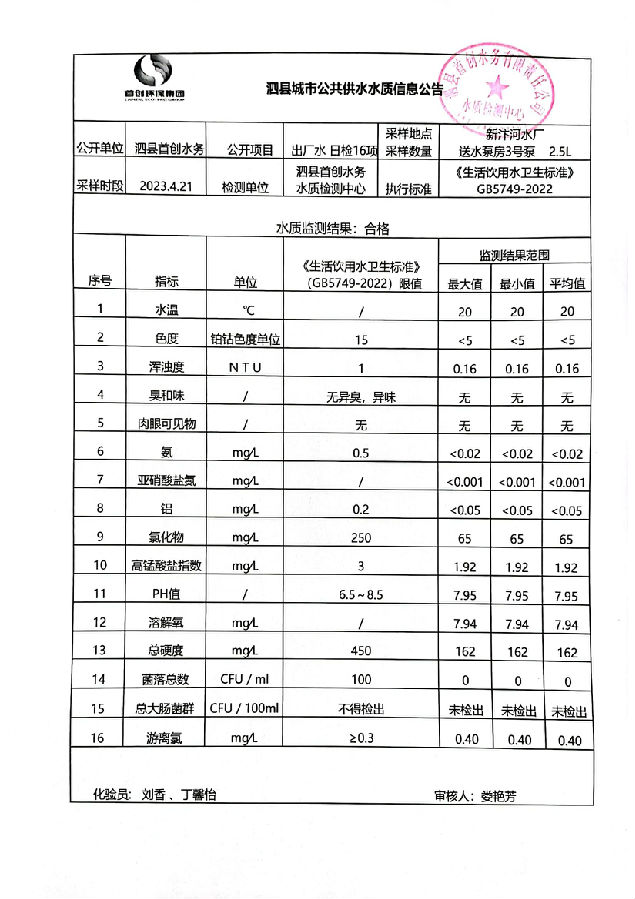 首创环保集团
泗县城市公共供水水质信息公告
泗县首创水务有限责任公司
水质检测中心
公开单位 泗县首创水务 公开项目 出厂水 日检16项 采样地点 采样数量 新汴河水厂 送水泵房3号泵 2.5L
采样时段 2023.4.21 检测单位 泗县首创水务 水质检测中心 执行标准 《生活饮用水卫生标准》 GB5749-2022
水质监测结果：合格
序号 指标 单位 《生活饮用水卫生标准》（GB5749-2022）限值 监测结果范围
最大值 最小值 平均值
1 水温 ℃ / 20 20 20
2 色度 铂钴色度单位 15 <5 <5 <5
3 浑浊度 NTU 1 0.16 0.16 0.16
4 臭和味 / 无异臭，异味 无 无 无
5 肉眼可见物 / 无 无 无 无
6 氨 mg/L 0.5 <0.02 <0.02 <0.02
7 亚硝酸盐氮 mg/L / <0.001 <0.001 <0.001
8 铝 mg/L 0.2 <0.05 <0.05 <0.05
9 氯化物 mg/L 250 65 65 65
10 高锰酸盐指数 mg/L 3 1.92 1.92 1.92
11 PH值 / 6.5~8.5 7.95 7.95 7.95
12 溶解氧 mg/L / 7.94 7.94 7.94
13 总硬度 mg/L 450 162 162 162
14 菌落总数 CFU / ml 100 0 0 0
15 总大肠菌群 CFU / 100ml 不得检出 未检出 未检出 未检出
16 游离氯 mg/L ≥0.3 0.40 0.40 0.40
化验员：刘香 、丁馨怡 审核人：娄艳芳